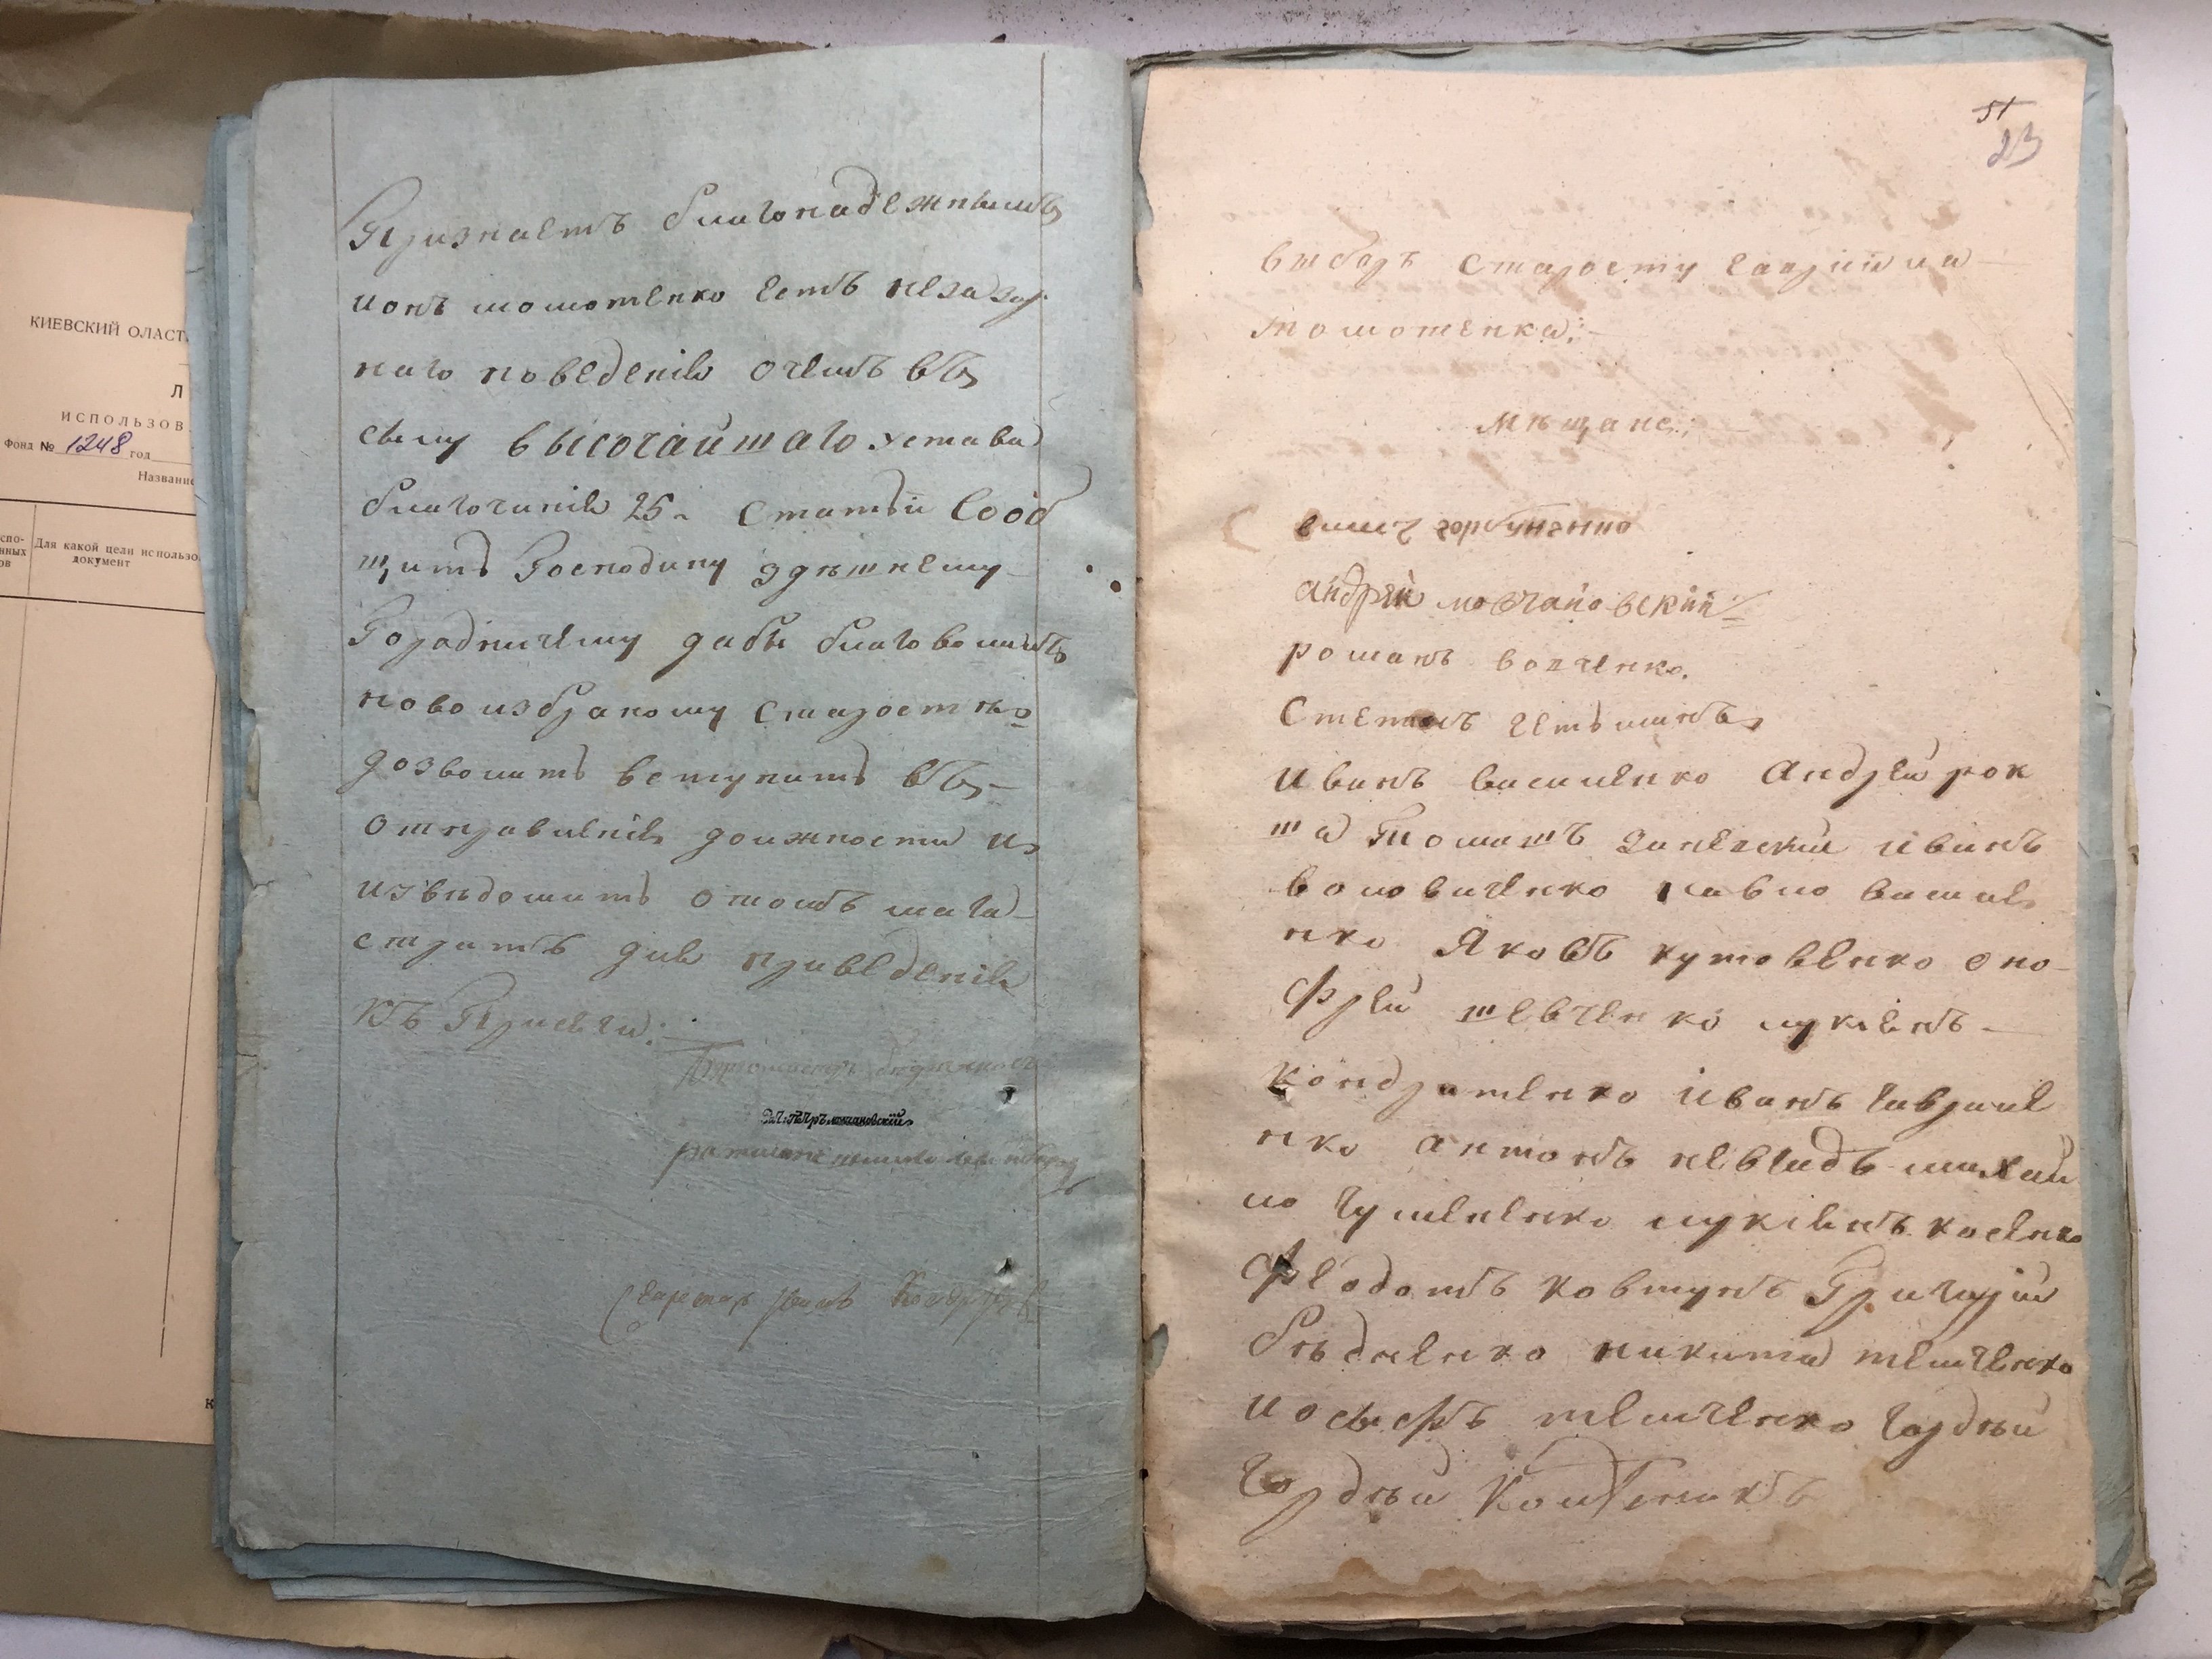 КИЕВСКИЙ ОЛАСТ
Л
ИСПОЛЬЗОВ
Фонд № 1248 год
Название
Для какой цели использо
документ
Признаетъ благонадежнымъ
ионъ шошотенко естъ незазор
наго поведенія очемъ въ
силу высочайшаго устава
благочинія 25й статьи сооб
щитъ Господину здѣшнему
Городничему дабы благоволилъ
новоизбраному старостѣ
дозволитъ вступитъ въ
отправленія должности и
извѣдомитъ отомъ маги
стратъ для приведенія
къ Присяги:
Бургомистръ
ратманъ
Секретарь
51
23
выборъ старосту гаврыила
тошотенка:
Мѣщане:
андрей мовчановскій
романъ вовченко.
Степанъ
иванъ василенко андрей рок
та Томашъ заневский иванъ
воловиченко павло васил
нко Яковъ кутовенко оно
фрей шевченко лукіянъ
кондратенко иванъ гаврил
нко антонъ невгадъ михай
ло гуменненко лукіянъ косенко
Феодотъ ковтунъ Григорій
бѣдненко никита темченко
иосифъ темченко гордѣй
гордѣй